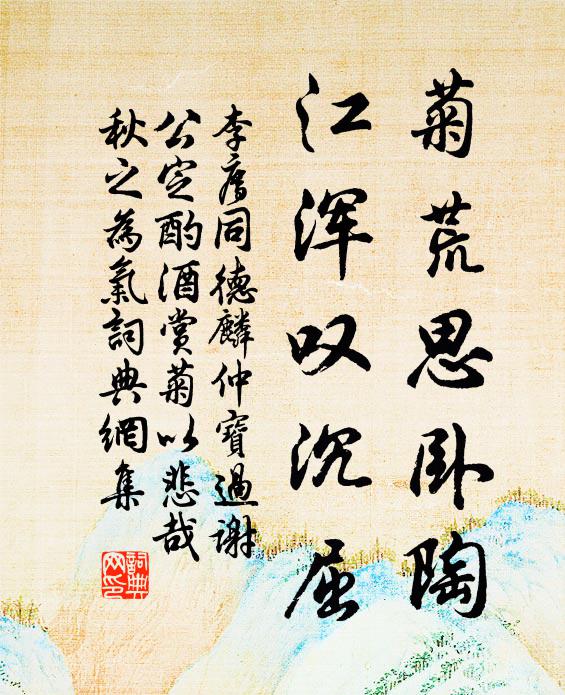 菊荒思卧陶
江浑叹沉屈
李廌同德麟仲寶過謝
公定酌酒赏菊以悲哉
秋之為氣詞典網集
詞典
网印